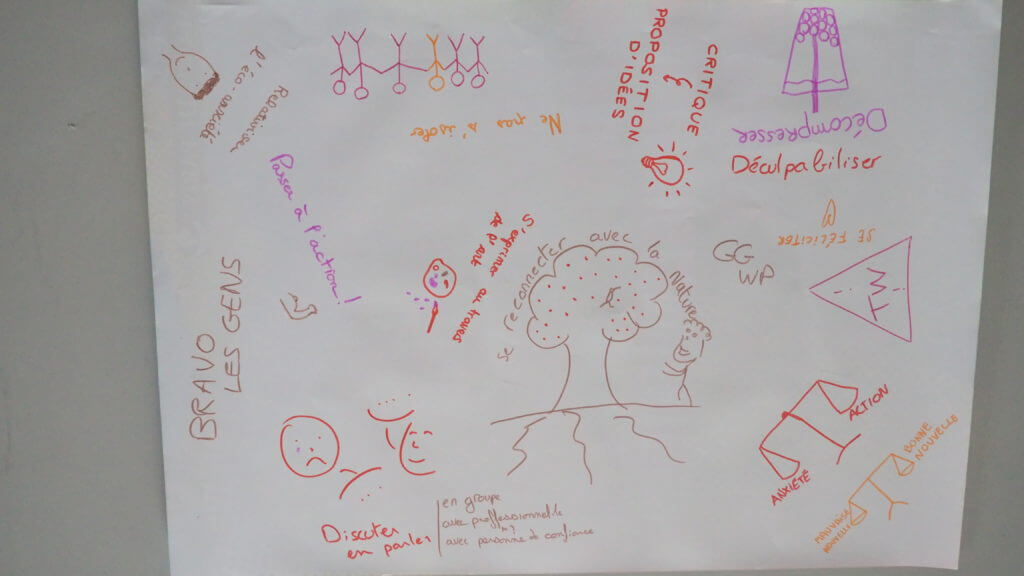 Relativiser
l'éco-anxiété
Ne pas s'isoler
CRITIQUE
&
PROPOSITION
D'IDÉES
Décompresser
Déculpabiliser
SE FÉLICITER
GG
WP
! TW !
Passer à l'action !
S'exprimer au travers
de l'art
se reconnecter avec la Nature
BRAVO
LES GENS
ACTION
ANXIÉTÉ
BONNE
NOUVELLE
MAUVAISE
NOUVELLE
Discuter
en parler
en groupe
avec professionnel·le
avec personne de confiance